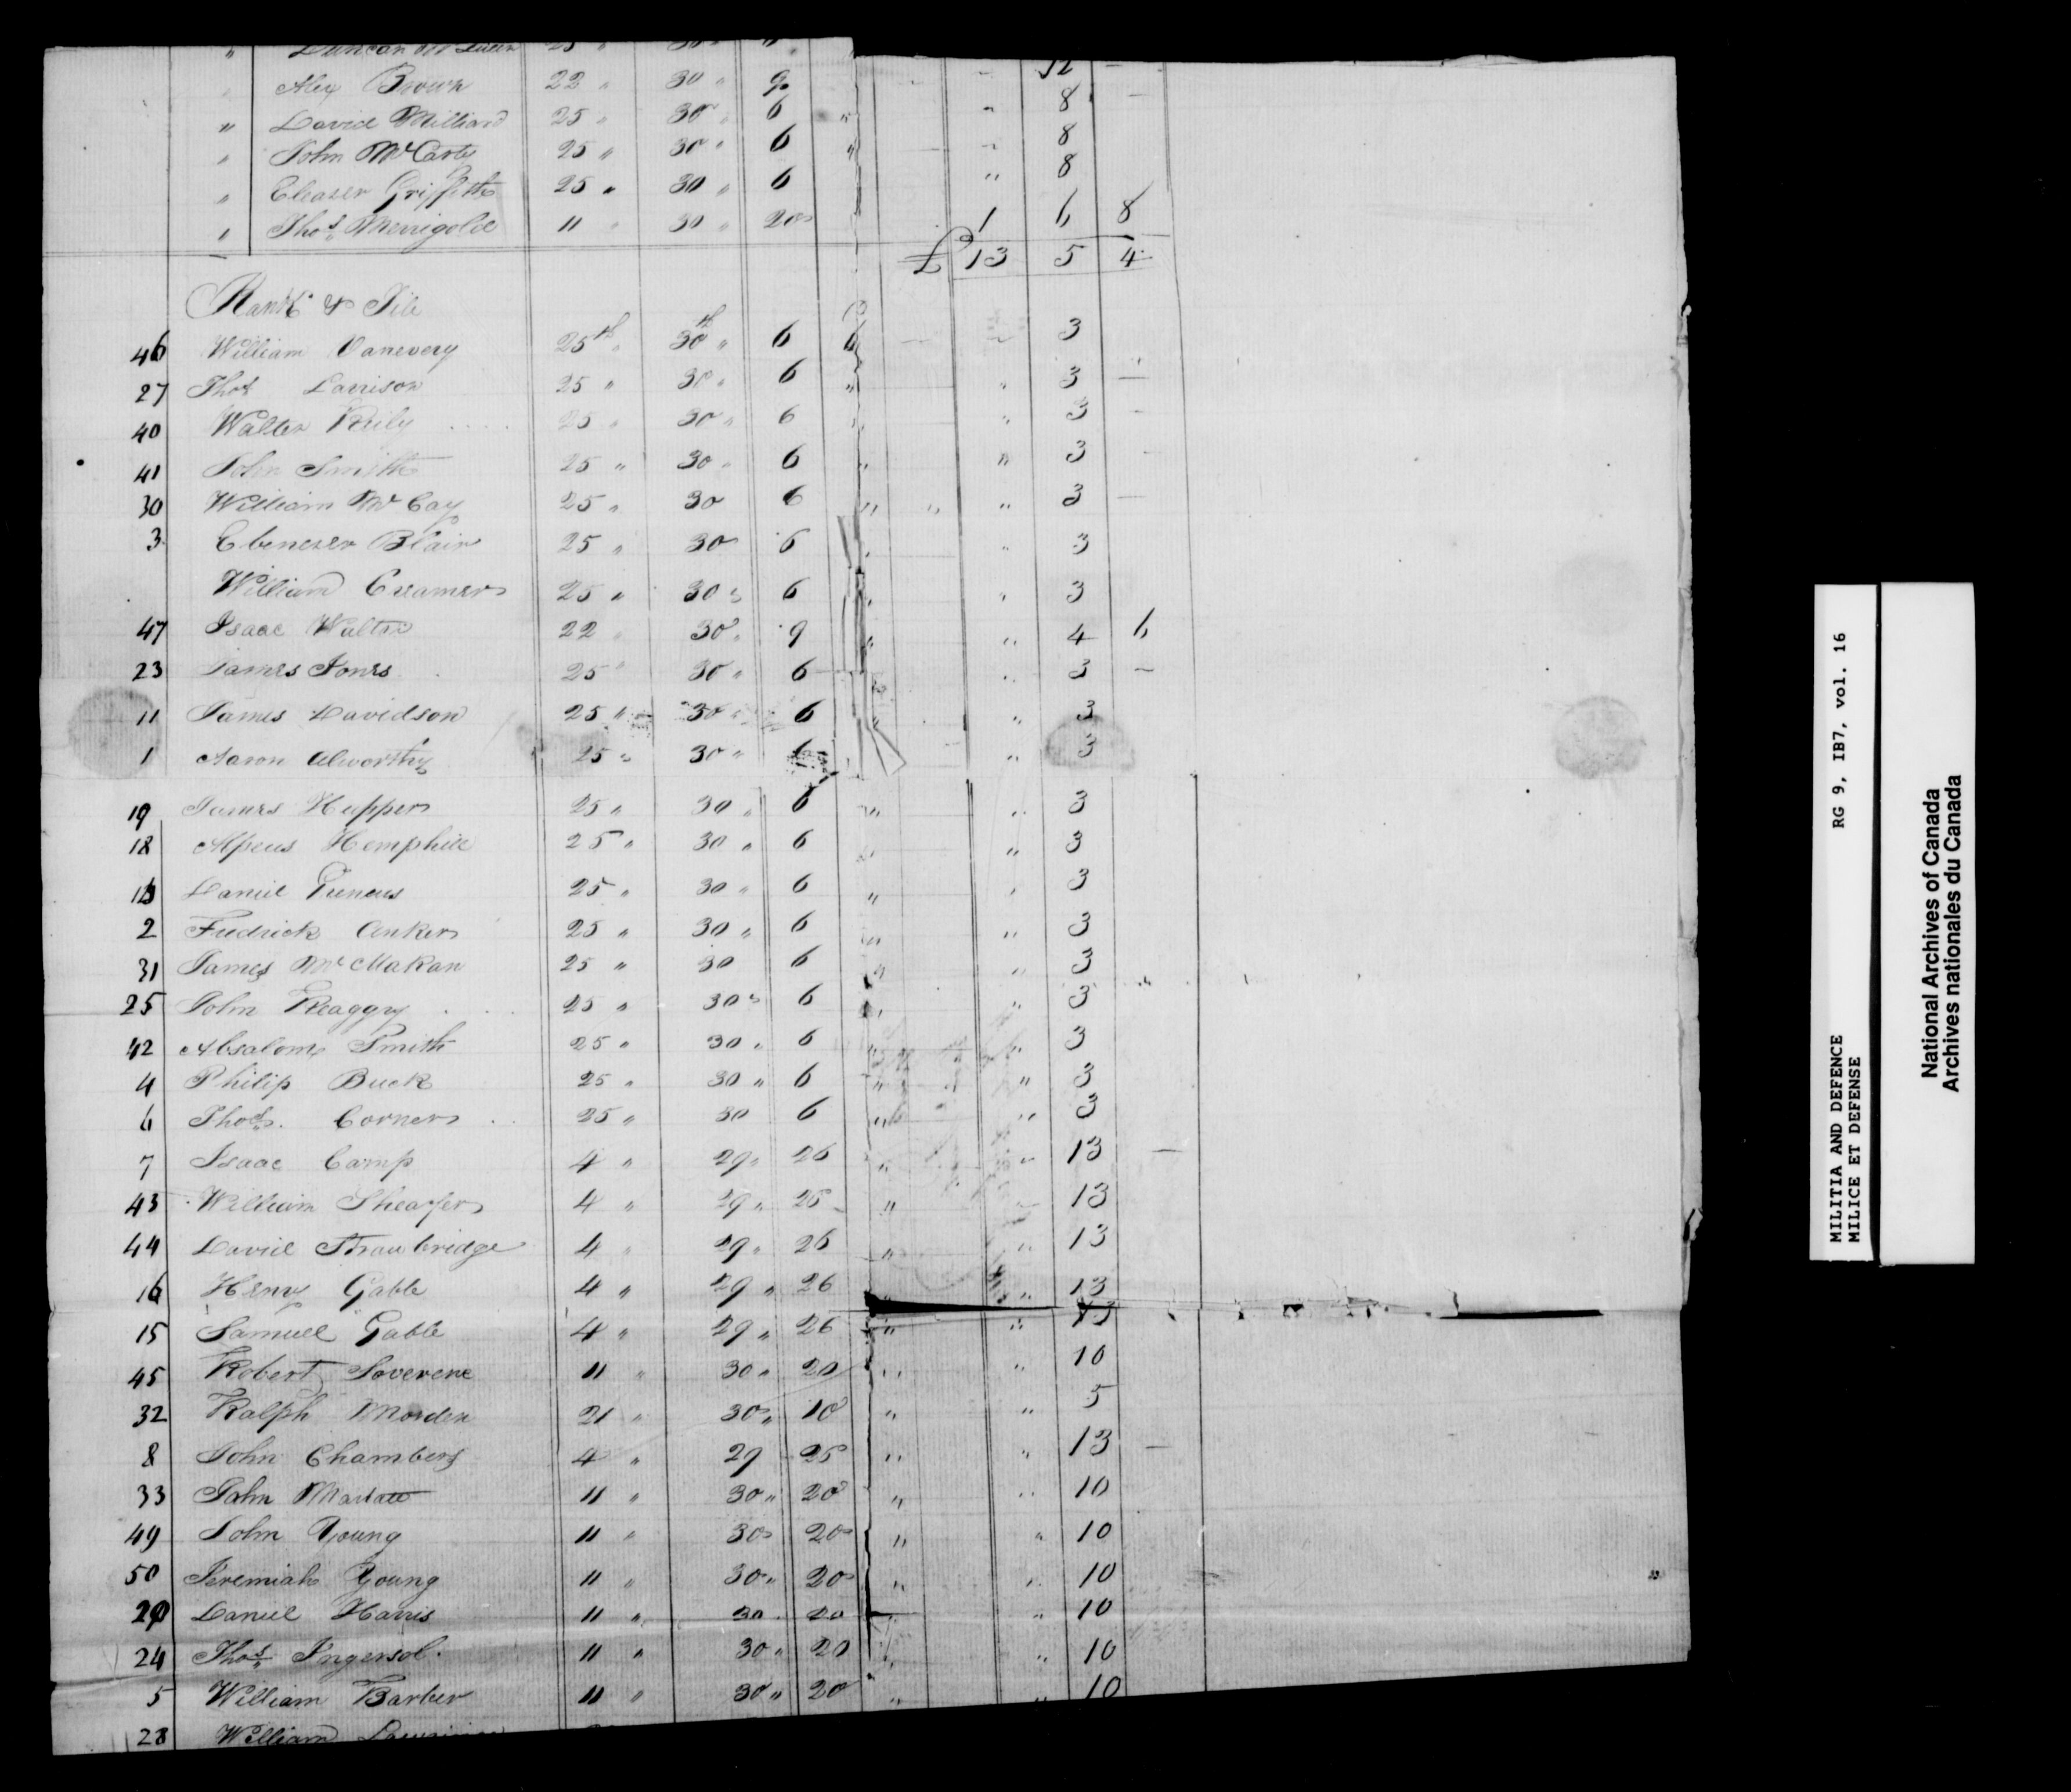 " Duncan 25 " 30 "
" Alex Brown 22 " 30 " 9 " 12 —
" David Milliard 25 " 30 " 6 " " 8 —
" John McCarty 25 " 30 " 6 " " 8
" Eleazer Griffith 25 " 30 " 6 " 8
" Thos Merrigold 11 " 30 " 20 1 6 8
£ 13 5 4
Rank & File
46 William Vanevery 25th " 30th " 6 3
27 Thos Larrison 25 " 30 " 6 " " 3 —
40 Walter Reily 25 " 30 " 6 " " 3 -
41 John Smith 25 " 30 " 6 " " 3 -
30 William McCay 25 " 30 6 " " " 3 —
3 Ebenezer Blair 25 " 30 6 " " 3
William Creamer 25 " 30 " 6 " " 3
47 Isaac Walter 22 " 30 " 9 " " 4 6
23 James Jones 25 " 30 " 6 " 3 -
11 James Davidson 25 " 30 " 6 " " 3
1 Aaron Alworthy 25 " 30 " 6 " 3
19 James Hupper 25 " 30 " 6 " " 3
18 Alpeus Hemphill 25 " 30 " 6 " " 3
Daniel 25 " 30 " 6 " " 3
2 Fredrick Anker 25 " 30 " 6 " " 3
31 James McMakan 25 " 30 6 " " 3
25 John Keaggy 25 " 30 " 6 " " 3
42 Absalom Smith 25 " 30 " 6 " " 3
4 Philip Buck 25 " 30 " 6 " " 3
6 Thos. Corner 25 " 30 6 " " 3
7 Isaac Camp 4 " 29 " 26 " " 13 —
43 William Sheafer 4 " 29 " 26 " 13
44 David Strawbridge 4 " 29 " 26 " " 13
16 Henry Gable 4 " 29 " 26 " " 13
15 Samuel Gable 4 " 29 " 26 " " 13
45 Robert Soverene 11 " 30 " 20 " " 10
32 Ralph Morden 21 " 30 " 10 " " 5
8 John Chambers 4 " 29 25 " " 13 —
33 John 11 " 30 " 20 " " 10
49 John Young 11 " 30 " 20 " " 10
50 Jeremiah Young 11 " 30 " 20 " " 10
20 Daniel Harris 11 " 30 20 " 10
24 Thos Ingersol. 11 " 30 " 20 " " 10
5 William Barber 11 " 30 " 20 " " 10
28 William
MILITIA AND DEFENCE RG 9, IB7, vol. 16
MILICE ET DEFENSE
National Archives of Canada
Archives nationales du Canada